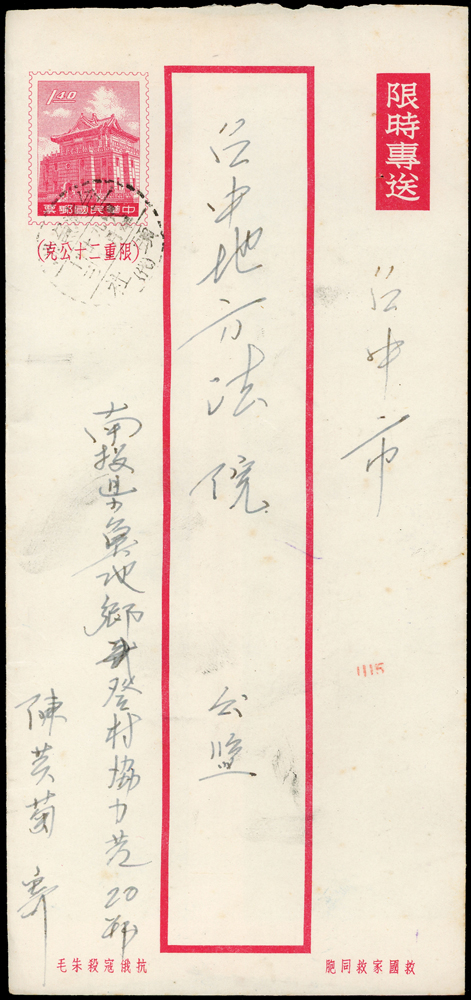 限時專送
台中市
台中地方法院 公鑒
1.40
中華民國郵票
(限重二十公克)
南投県魚池鄉登村協力巷20號
陳 菊 寄
1115
救國家救同胞
抗俄寇殺朱毛